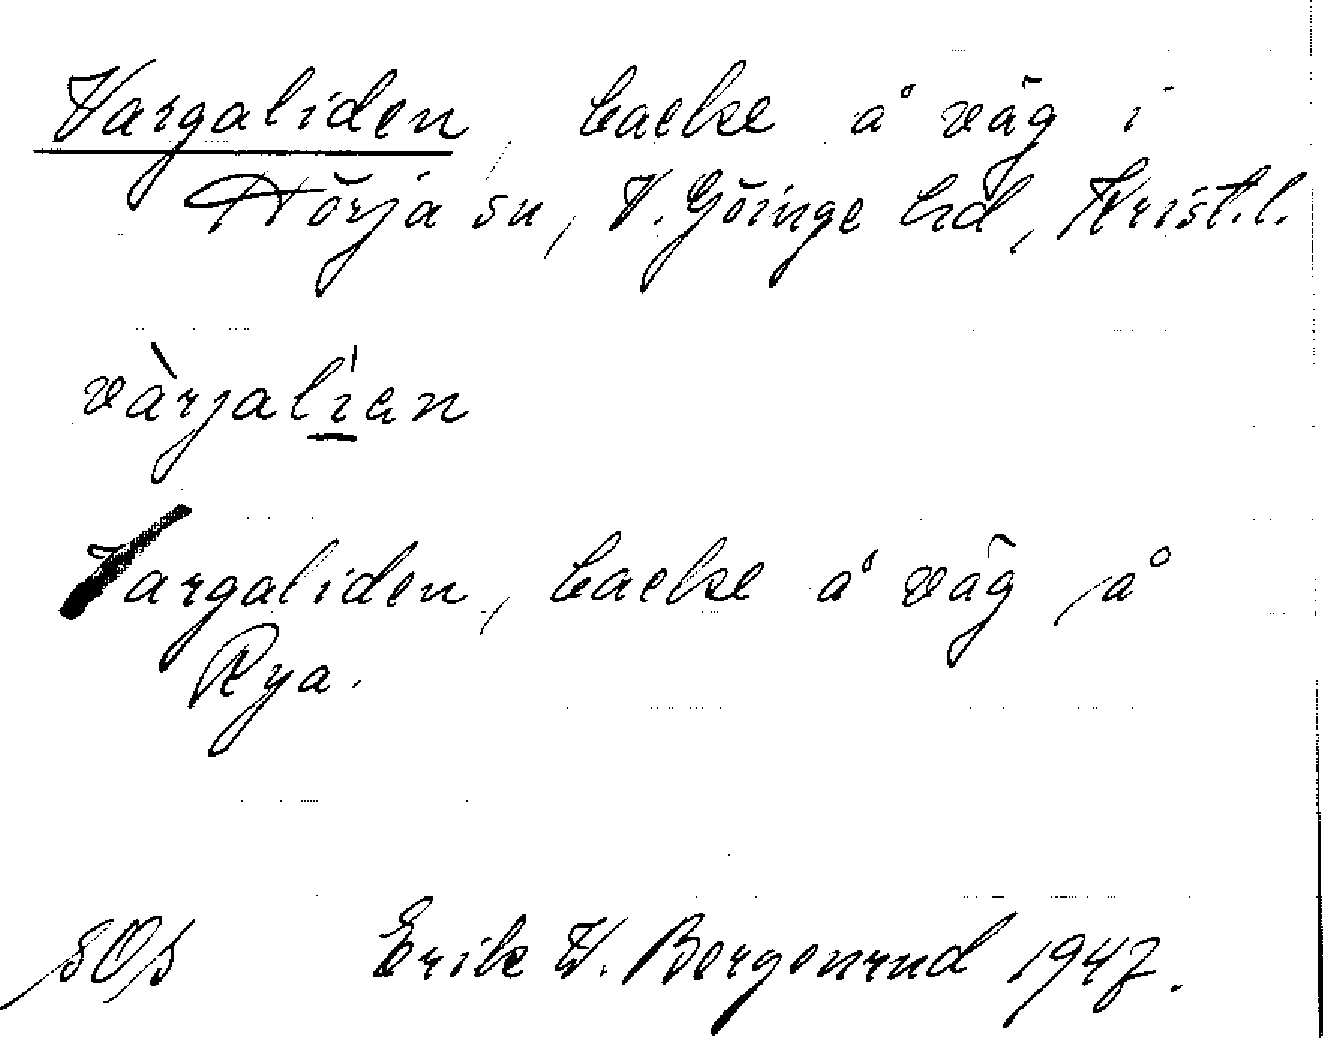 Vargaliden, backe å väg i
Hörja sn, V. Göinge hd, Krist.l.
vàrjalien
Vargaliden, backe å väg å
Rya.
SOS Erik W. Bergenrud 1947.